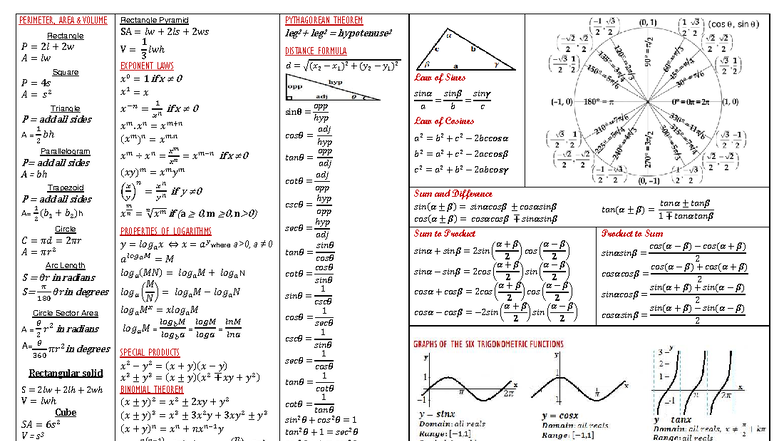 PERIMETER, AREA & VOLUME
Rectangle
P = 2l + 2w
A = lw
Square
P = 4s
A = s²
Triangle
P = add all sides
A = 1/2 bh
Parallelogram
P = add all sides
A = bh
Trapezoid
P = add all sides
A = 1/2 (b₁ + b₂)h
Circle
C = πd = 2πr
A = πr²
Arc Length
S = θr in radians
S = π/180 θr in degrees
Circle Sector Area
A = θ/2 r² in radians
A = θ/360 πr² in degrees
Rectangular solid
S = 2lw + 2lh + 2wh
V = lwh
Cube
SA = 6s²
V = s³
Rectangle Pyramid
SA = lw + 2ls + 2ws
V = 1/3 lwh
EXPONENT LAWS
x⁰ = 1 if x ≠ 0
x¹ = x
x⁻ⁿ = 1/xⁿ if x ≠ 0
xᵐ.xⁿ = xᵐ⁺ⁿ
(xᵐ)ⁿ = xᵐ·ⁿ
xᵐ ÷ xⁿ = xᵐ/xⁿ = xᵐ⁻ⁿ if x ≠ 0
(xy)ᵐ = xᵐyᵐ
(x/y)ⁿ = xⁿ/yⁿ if y ≠ 0
x^(m/n) = ⁿ√xᵐ if (a ≥ 0, m ≥ 0, n > 0)
PROPERTIES OF LOGARITHMS
y = logₐx ⇔ x = aʸ where a>0, a ≠ 0
a^(logₐM) = M
logₐ(MN) = logₐM + logₐN
logₐ(M/N) = logₐM − logₐN
logₐMˣ = xlogₐM
logₐM = log_bM/log_ba = logM/loga = lnM/lna
SPECIAL PRODUCTS
x² − y² = (x + y)(x − y)
x³ ± y³ = (x ± y)(x² ∓ xy + y²)
BINOMIAL THEOREM
(x ± y)² = x² ± 2xy + y²
(x ± y)³ = x³ ± 3x²y + 3xy² ± y³
(x + y)ⁿ = xⁿ + nxⁿ⁻¹y
PYTHAGOREAN THEOREM
leg² + leg² = hypotenuse²
DISTANCE FORMULA
d = √((x₂ − x₁)² + (y₂ − y₁)²)
opp hyp
adj θ
sinθ = opp/hyp
cosθ = adj/hyp
tanθ = opp/adj
cotθ = adj/opp
cscθ = hyp/opp
secθ = hyp/adj
tanθ = sinθ/cosθ
cotθ = cosθ/sinθ
sinθ = 1/cscθ
cosθ = 1/secθ
cscθ = 1/sinθ
secθ = 1/cosθ
tanθ = 1/cotθ
cotθ = 1/tanθ
sin²θ + cos²θ = 1
tan²θ + 1 = sec²θ
α
c b
β a γ
Law of Sines
sinα/a = sinβ/b = sinγ/c
Law of Cosines
a² = b² + c² − 2bccosα
b² = a² + c² − 2accosβ
c² = a² + b² − 2abcosγ
(0, 1)
(cos θ, sin θ)
90° = π/2
(-1, 0) 180° = π
0° = 0 = 2π (1, 0)
270° = 3π/2
(0, -1)
Sum and Difference
sin(α ± β) = sinαcosβ ± cosαsinβ
cos(α ± β) = cosαcosβ ∓ sinαsinβ
tan(α ± β) = (tanα ± tanβ)/(1 ∓ tanαtanβ)
Sum to Product
sinα + sinβ = 2sin((α + β)/2)cos((α − β)/2)
sinα − sinβ = 2cos((α + β)/2)sin((α − β)/2)
cosα + cosβ = 2cos((α + β)/2)cos((α − β)/2)
cosα − cosβ = −2sin((α + β)/2)sin((α − β)/2)
Product to Sum
sinαsinβ = (cos(α − β) − cos(α + β))/2
cosαcosβ = (cos(α − β) + cos(α + β))/2
sinαcosβ = (sin(α + β) + sin(α − β))/2
cosαsinβ = (sin(α + β) − sin(α − β))/2
GRAPHS OF THE SIX TRIGONOMETRIC FUNCTIONS
y = sinx
Domain: all reals
Range: [-1,1]
y = cosx
Domain: all reals
Range: [-1,1]
y = tanx
Domain: all reals, x ≠ π/2 + kπ